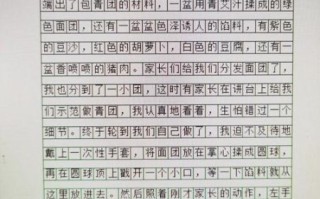 端出了包青团的材料，一盆用青艾汁揉成的绿
色面团，还有一盆盆色泽诱人的馅料，有紫色
的豆沙，红色的胡萝卜，白色的豆腐，还有一
盆香喷喷的猪肉。家长们给我们分发面团了，
我也分到了一个团，这时有家长在讲台上给我
们示范做青团，我认真地看着，生怕错过一个
细节。终于轮到我们自己做了，我迫不及待地
戴上一次性手套，将面团放在掌心揉成圆球，
再在圆球顶上戳开一个小口，等一下馅料就从
这里放进去。然后照着刚才家长的动作，左手